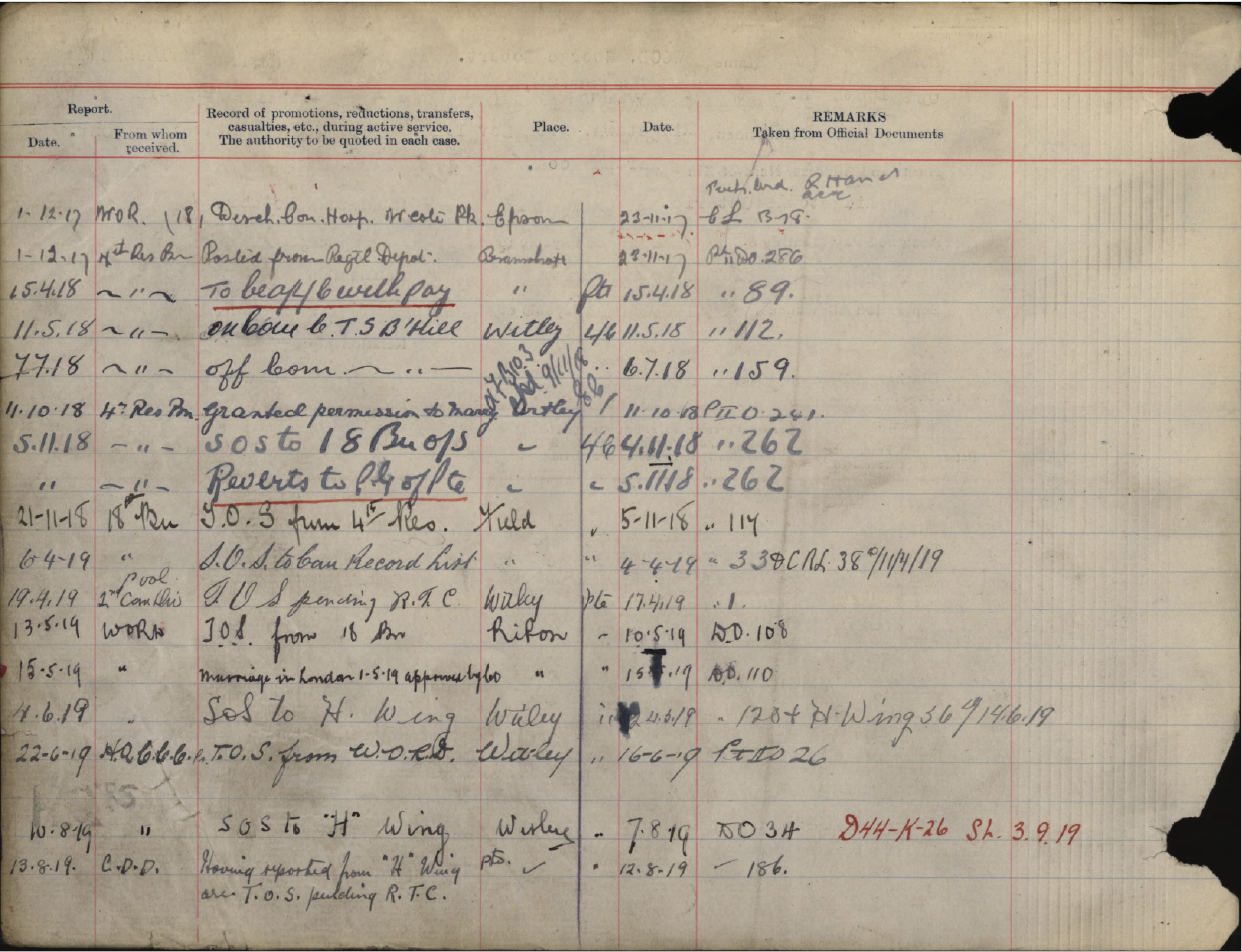 Report.
Record of promotions, reductions, transfers, casualties, etc., during active service. The authority to be quoted in each case.
Place.
Date.
REMARKS
Taken from Official Documents
Date.
From whom received.
1-12-17 W.O.R. 18, Disch. Con. Hosp. Pk. Epsom 23-11-17 B-78.
1-12-17 4th Res Bn Posted from Regtl Depot. Bramshott 23-11-17 Pt II DO. 286
15.4.18 ~ " ~ To be with pay " Pte 15.4.18 " 89.
11.5.18 ~ " ~ on Com T.S B'Hill Witley 11.5.18 " 112.
7.7.18 ~ " ~ off Com. ~ " ~ 6.7.18 " 159.
9/11/18
11.10.18 4th Res Bn. Granted permission to marry Witley 11.10.18 PT II O. 241.
5.11.18 - " - SOS to 18 Bn 4.11.18 " 262
" - " - Reverts to of Pte " " 5.11.18 " 262
21-11-18 18th Bn T.O.S from 4th Res. Field " 5-11-18 " 117
6-4-19 " S.O.S. to Can Record List " " 4-4-19 " 33
19.4.19 2nd Can Div Pool T O S pending R.T.C. Witley Pte 17.4.19 " 1.
13.5.19 WORD T.O.S. from 18 Bn Ripon " 10.5.19 D.O. 108
15-5-19 " Marriage in London 1-5-19 approved by CO " " 15.5.19 DO. 110
4.6.19 " SOS to H. Wing Witley " H. Wing 14.6.19
22-6-19 T.O.S. from W.O.R.D. Witley " 16-6-19 Pt II DO 26
10.8.19 " SOS to "H" Wing Witley " 7.8.19 DO 34 D44-K-26 SL. 3.9.19
13.8.19. C.D.D. Having reported from "H" Wing " 12-8-19 - 186.
are T.O.S. pending R.T.C.